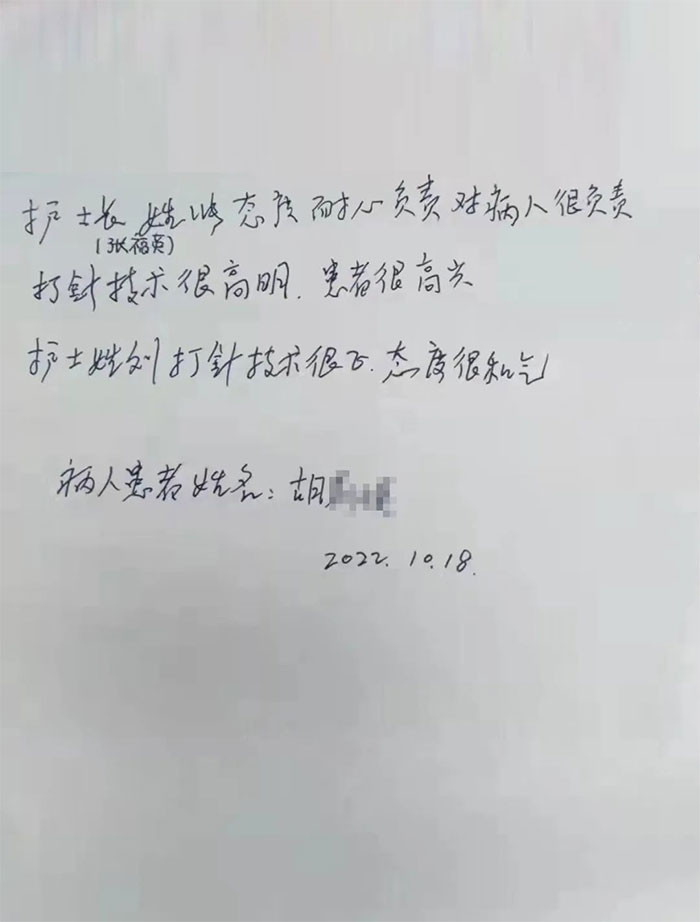 护士长 姓 态度耐心负责对病人很负责
(张福英)
打針技术很高明.患者很高兴
护士姓刘打針技术很好.态度很和气
病人患者姓名:胡
2022.10.18.